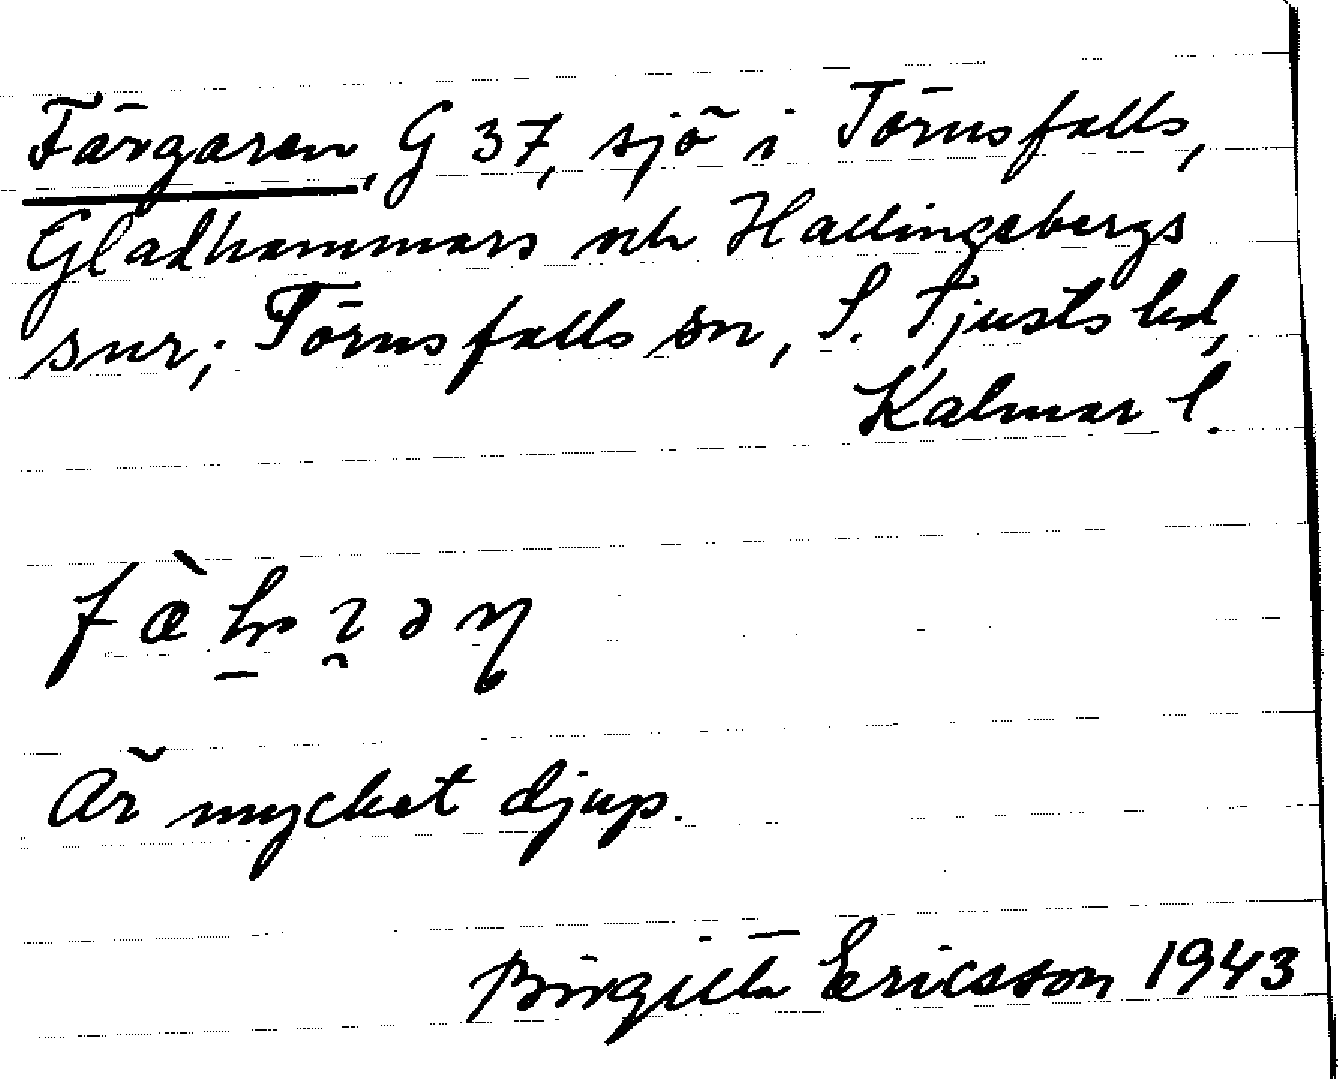 Färgaren, G 37, sjö i Törnsfalls,
Gladhammars och Hallingebergs
snr; Törnsfalls sn, S. Tjusts hd,
Kalmar l.
Är mycket djup.
Birgitta Ericsson 1943